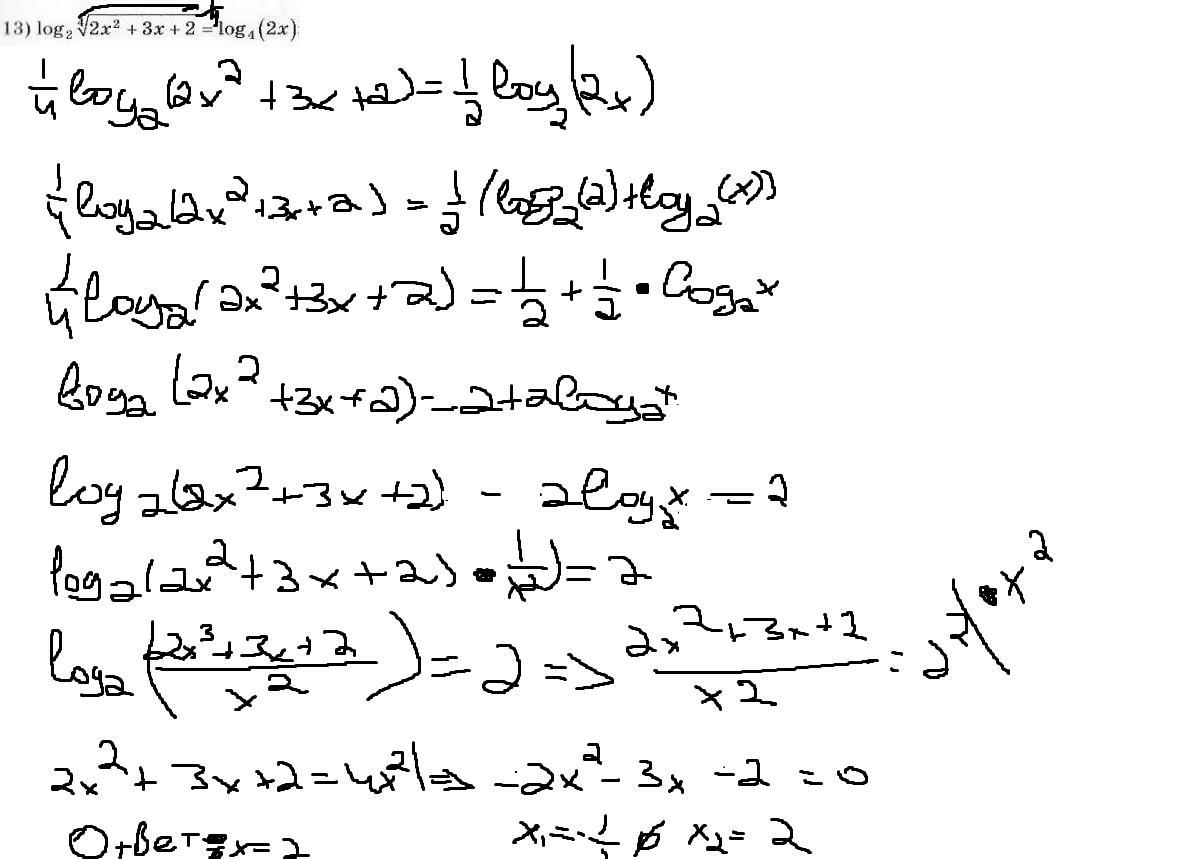 13) log₂ ∜(2x² + 3x + 2) = log₄(2x)
1/4 log₂(2x² + 3x + 2) = 1/2 log₂(2x)
1/4 log₂(2x² + 3x + 2) = 1/2 (log₂(2) + log₂(x))
1/4 log₂(2x² + 3x + 2) = 1/2 + 1/2 · log₂x
log₂(2x² + 3x + 2) = 2 + 2log₂x
log₂(2x² + 3x + 2) - 2log₂x = 2
log₂(2x² + 3x + 2) · 1/x²) = 2
log₂((2x³ + 3x + 2)/x²) = 2 => (2x² + 3x + 2)/x2 = 2² | · x²
2x² + 3x + 2 = 4x² | => -2x² - 3x - 2 = 0
Ответ: x = 2 x₁ = -1/ ø x₂ = 2